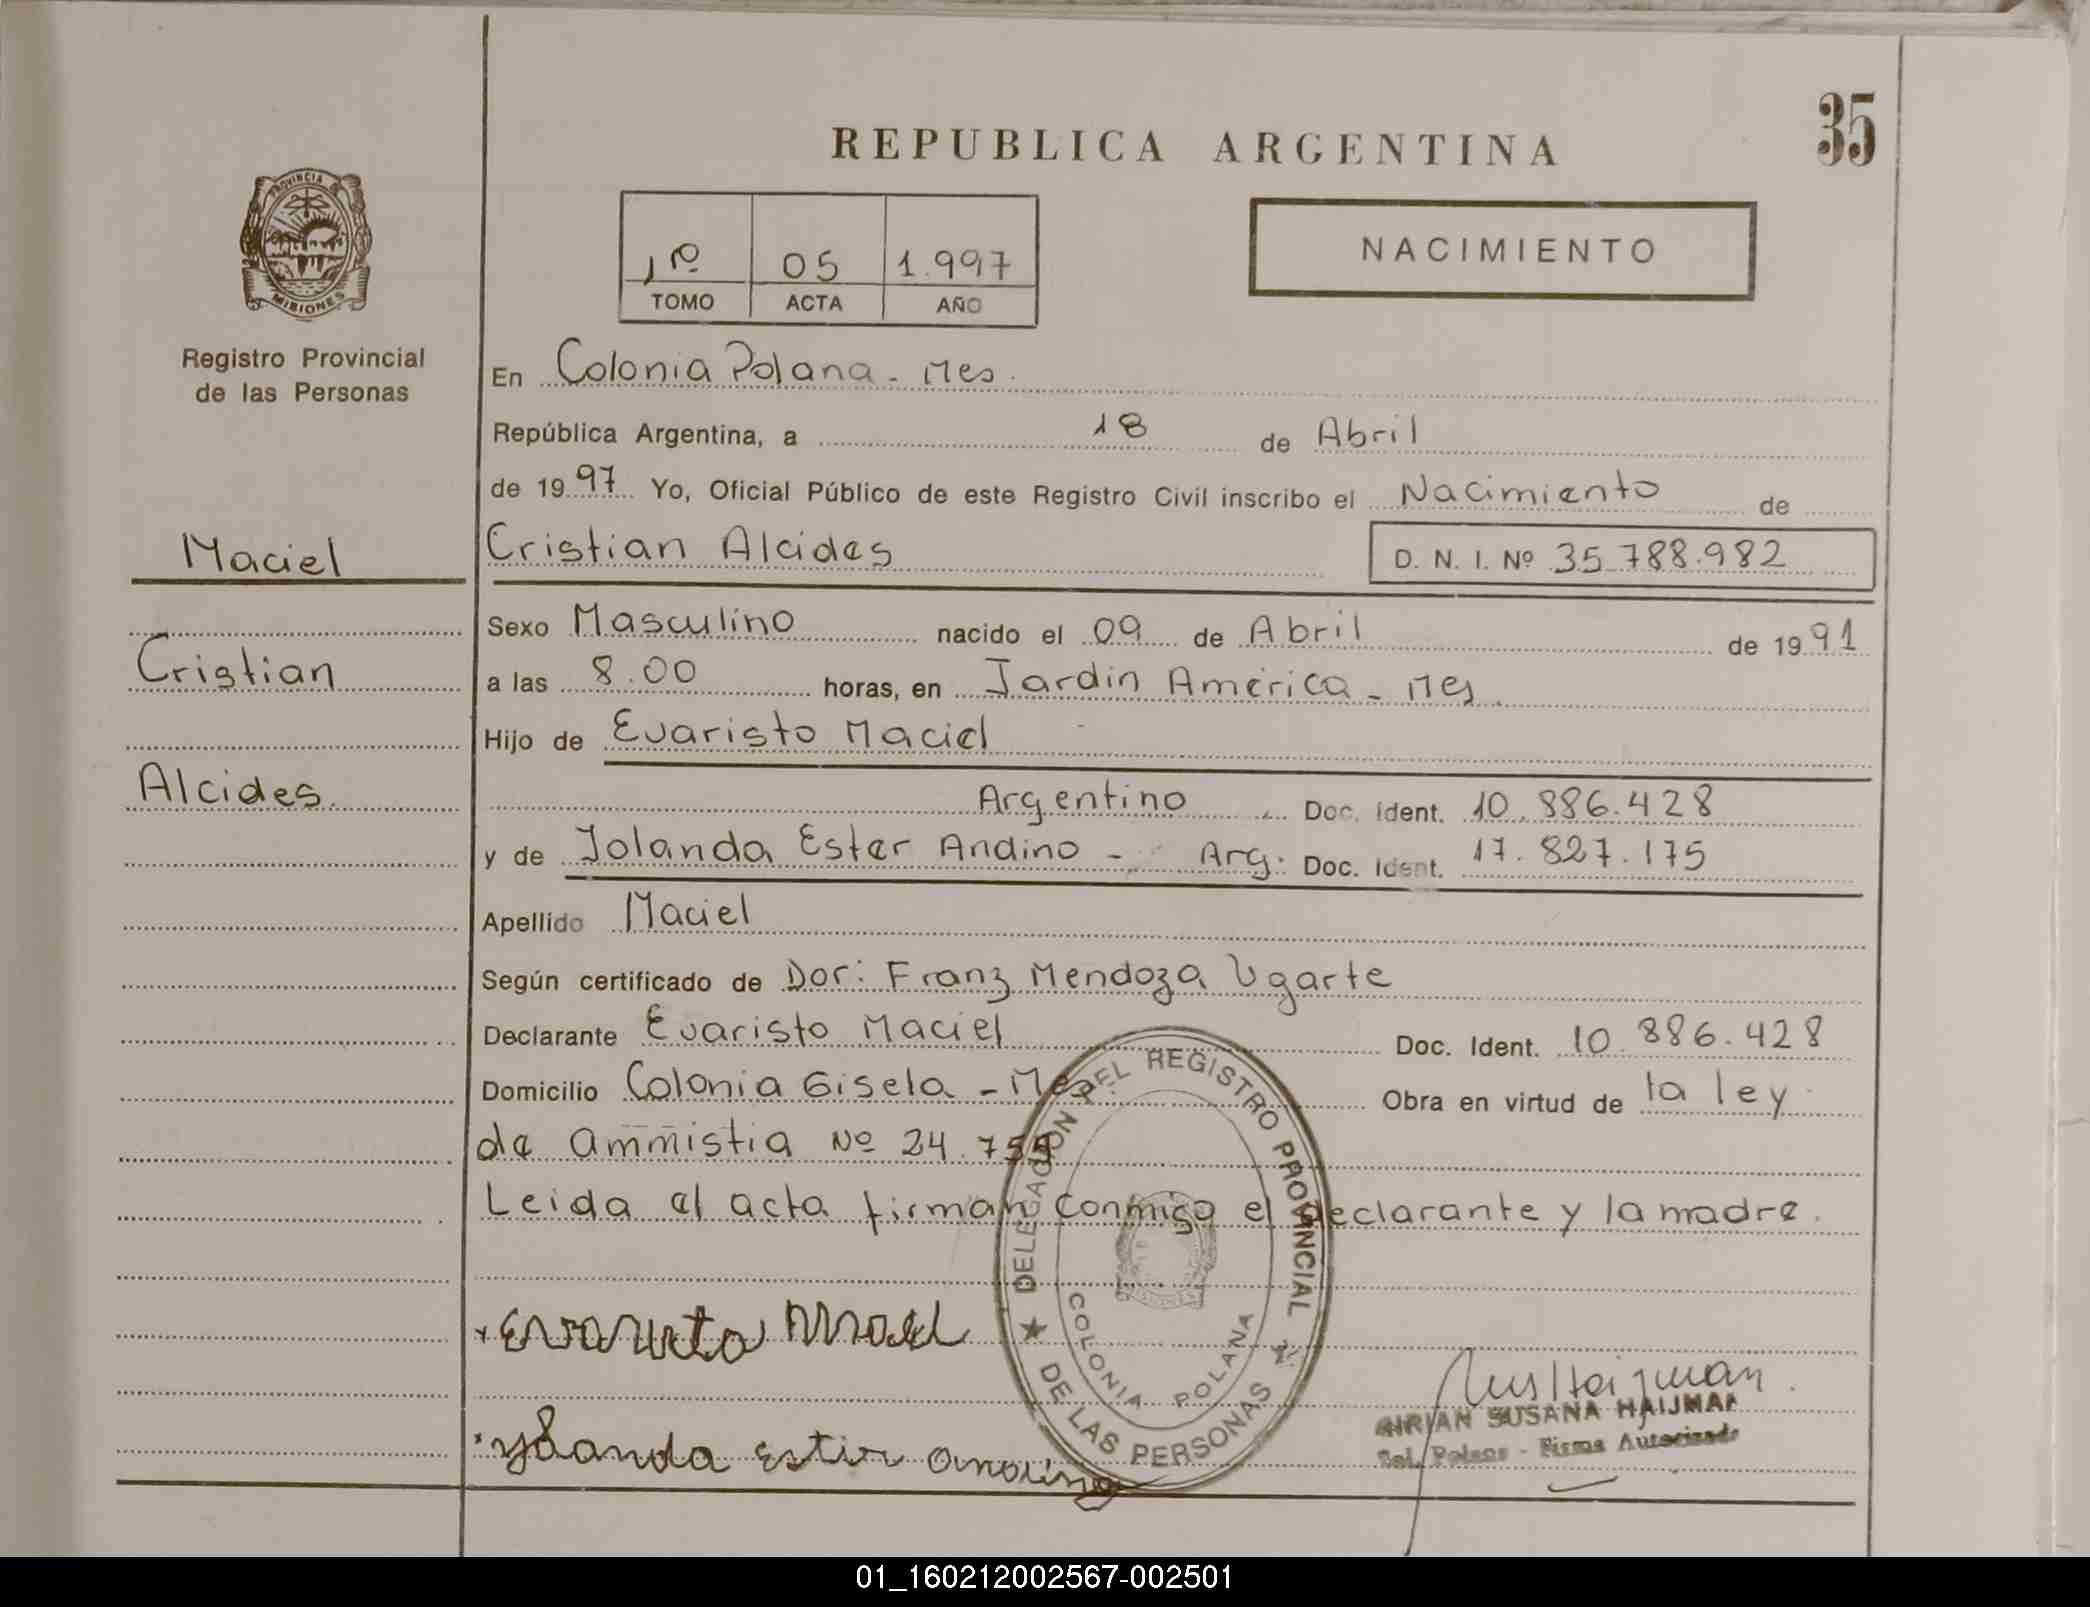 35
REPUBLICA ARGENTINA
PROVINCIA DE
MISIONES
Registro Provincial
de las Personas
1º 05 1.997
TOMO ACTA AÑO
NACIMIENTO
En Colonia Polana - Mes.
República Argentina, a 18 de Abril
de 1997 Yo, Oficial Público de este Registro Civil inscribo el Nacimiento de
Maciel
Cristian Alcides D. N. I. Nº 35.788.982
Sexo Masculino nacido el 09 de Abril de 1991
Cristian
a las 8.00 horas, en Jardin América - Mes.
Hijo de Evaristo Maciel
Alcides
Argentino Doc. Ident. 10.886.428
y de Iolanda Ester Andino - Arg. Doc. Ident. 17.827.175
Apellido Maciel
Según certificado de Dor: Franz Mendoza Ugarte
Declarante Evaristo Maciel Doc. Ident. 10.886.428
Domicilio Colonia Gisela - Mes. Obra en virtud de la ley
de ammistia Nº 24.755
Leida el acta firman conmigo el declarante y la madre.
DELEGACION DEL REGISTRO PROVINCIAL
DE LAS PERSONAS
COLONIA POLANA
MIRIAN SUSANA HAIJMAN
Col. Polana - Firma Autorizada
01_160212002567-002501